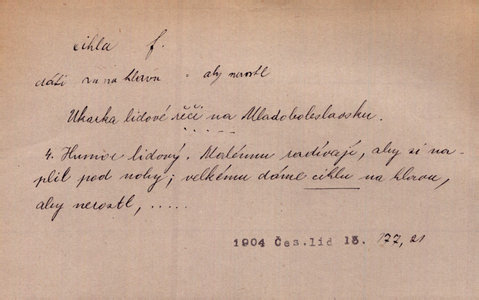 cihla f.
dáti na hlavu - aby nerostl
Ukázka lidové řeči na Mladoboleslavsku.
. . . . .
4. Humor lidový. Malému radívají, aby si na-
plil pod nohy; velkému dáme cihlu na hlavu,
aby nerostl, .....
1904 Čes.lid 13. 177, 21